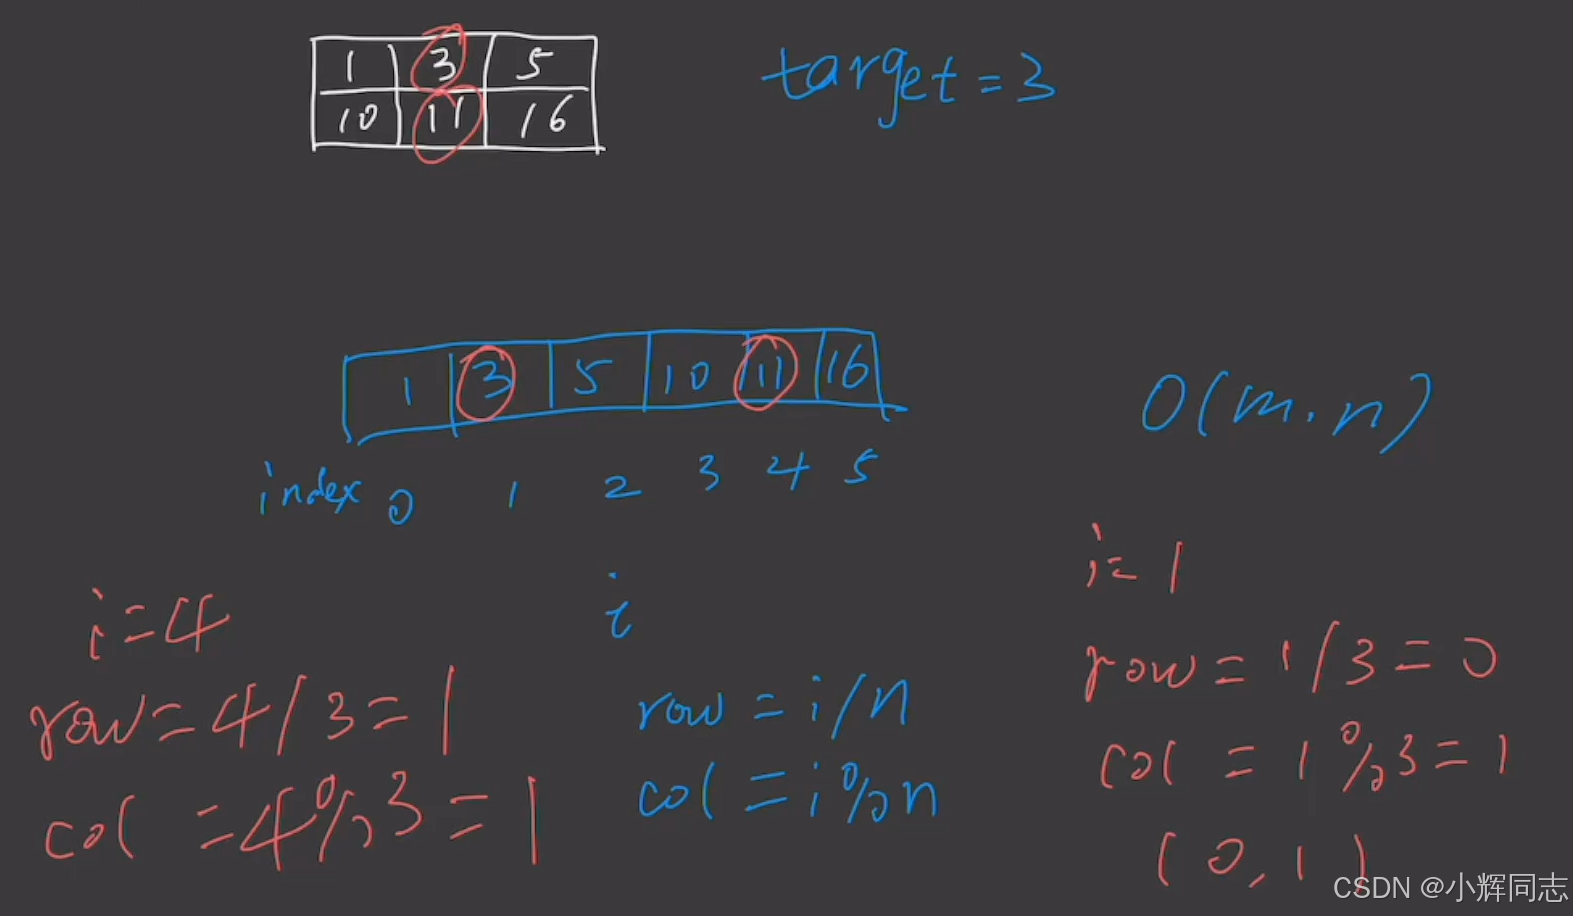 1 3 5
10 11 16
target = 3
1 3 5 10 11 16
index 0 1 2 3 4 5
O(m.n)
i=4
row=4/3=1
col=4%3=1
i
row=i/n
col=i%n
i=1
row=1/3=0
col=1%3=1
(0,1)
CSDN @小辉同志